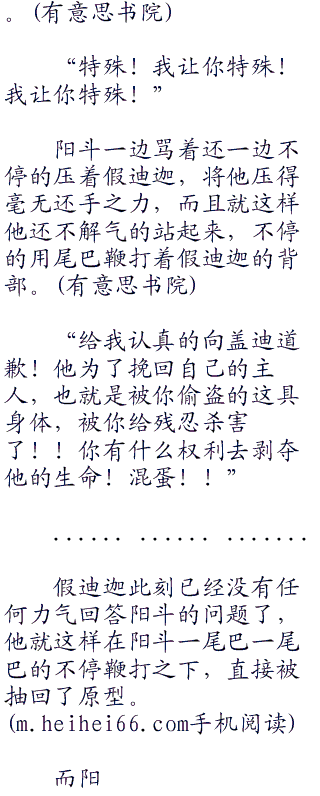 。(有意思书院)
“特殊！我让你特殊！
我让你特殊！”
阳斗一边骂着还一边不
停的压着假迪迦，将他压得
毫无还手之力，而且就这样
他还不解气的站起来，不停
的用尾巴鞭打着假迪迦的背
部。(有意思书院)
“给我认真的向盖迪道
歉！他为了挽回自己的主
人，也就是被你偷盗的这具
身体，被你给残忍杀害
了！！你有什么权利去剥夺
他的生命！混蛋！！”
...... ...... .......
假迪迦此刻已经没有任
何力气回答阳斗的问题了，
他就这样在阳斗一尾巴一尾
巴的不停鞭打之下，直接被
抽回了原型。
(m.heihei66.com手机阅读)
而阳